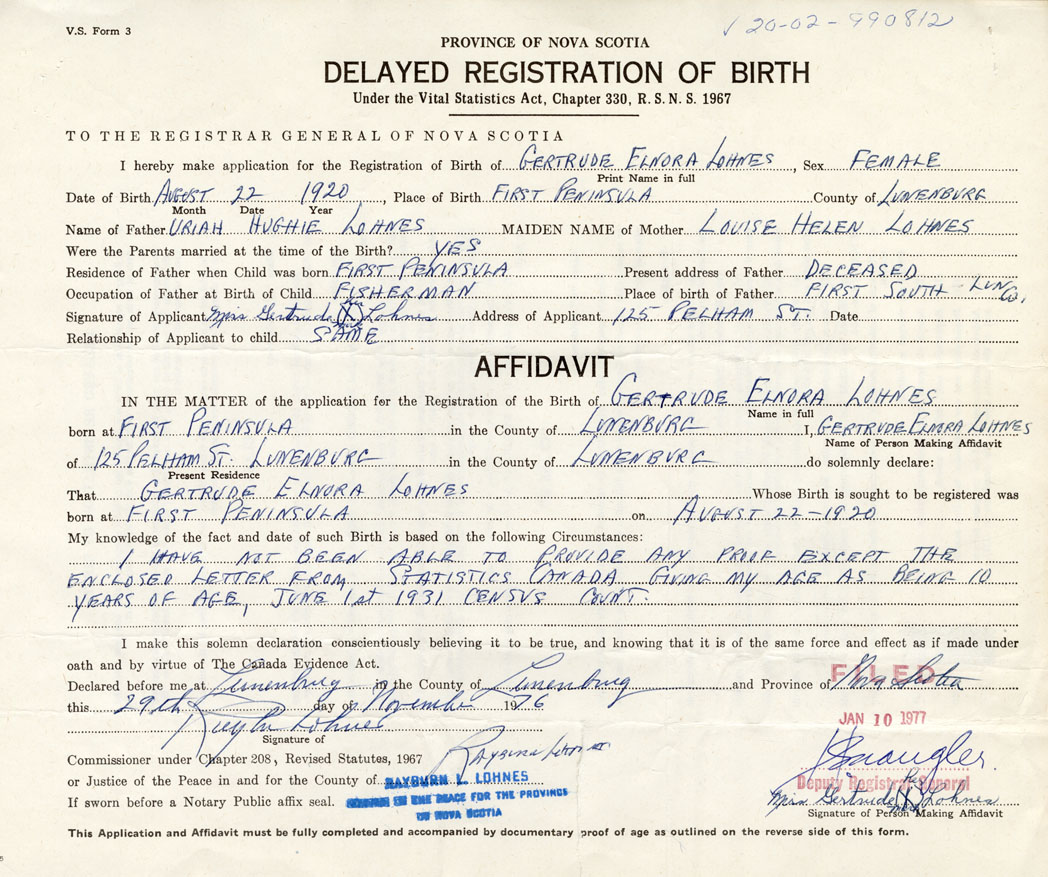 V.S. Form 3
20-02-990812
PROVINCE OF NOVA SCOTIA
DELAYED REGISTRATION OF BIRTH
Under the Vital Statistics Act, Chapter 330, R. S. N. S. 1967
TO THE REGISTRAR GENERAL OF NOVA SCOTIA
I hereby make application for the Registration of Birth of GERTRUDE ELNORA LOHNES, Sex FEMALE
Print Name in full
Date of Birth AUGUST 22 1920, Place of Birth FIRST PENINSULA County of LUNENBURG
Month Date Year
Name of Father URIAH HUGHIE LOHNES MAIDEN NAME of Mother LOUISE HELEN LOHNES
Were the Parents married at the time of the Birth? YES
Residence of Father when Child was born FIRST PENINSULA Present address of Father DECEASED
Occupation of Father at Birth of Child FISHERMAN Place of birth of Father FIRST SOUTH LUN Co,
Signature of Applicant Mrs Gertrude X Lohnes Address of Applicant 125 PELHAM ST. Date
Relationship of Applicant to child SAME
AFFIDAVIT
IN THE MATTER of the application for the Registration of the Birth of GERTRUDE ELNORA LOHNES
Name in full
born at FIRST PENINSULA in the County of LUNENBURG I, GERTRUDE ELNORA LOHNES
Name of Person Making Affidavit
of 125 PELHAM ST. LUNENBURG in the County of LUNENBURG do solemnly declare:
Present Residence
That GERTRUDE ELNORA LOHNES Whose Birth is sought to be registered was
born at FIRST PENINSULA on AUGUST 22-1920
My knowledge of the fact and date of such Birth is based on the following Circumstances:
I HAVE NOT BEEN ABLE TO PROVIDE ANY PROOF EXCEPT THE
ENCLOSED LETTER FROM STATISTICS CANADA GIVING MY AGE AS BEING 10
YEARS OF AGE, JUNE 1st 1931 CENSUS COUNT.
I make this solemn declaration conscientiously believing it to be true, and knowing that it is of the same force and effect as if made under
oath and by virtue of The Canada Evidence Act.
Declared before me at Lunenburg in the County of Lunenburg and Province of Nova Scotia
FILED
this 29th day of November 1976
JAN 10 1977
Signature of
Commissioner under Chapter 208, Revised Statutes, 1967
or Justice of the Peace in and for the County of RAYBURN L. LOHNES
Deputy Registrar General
If sworn before a Notary Public affix seal. IN THE PEACE FOR THE PROVINCE
OF NOVA SCOTIA
Mrs Gertrude X Lohnes
Signature of Person Making Affidavit
This Application and Affidavit must be fully completed and accompanied by documentary proof of age as outlined on the reverse side of this form.